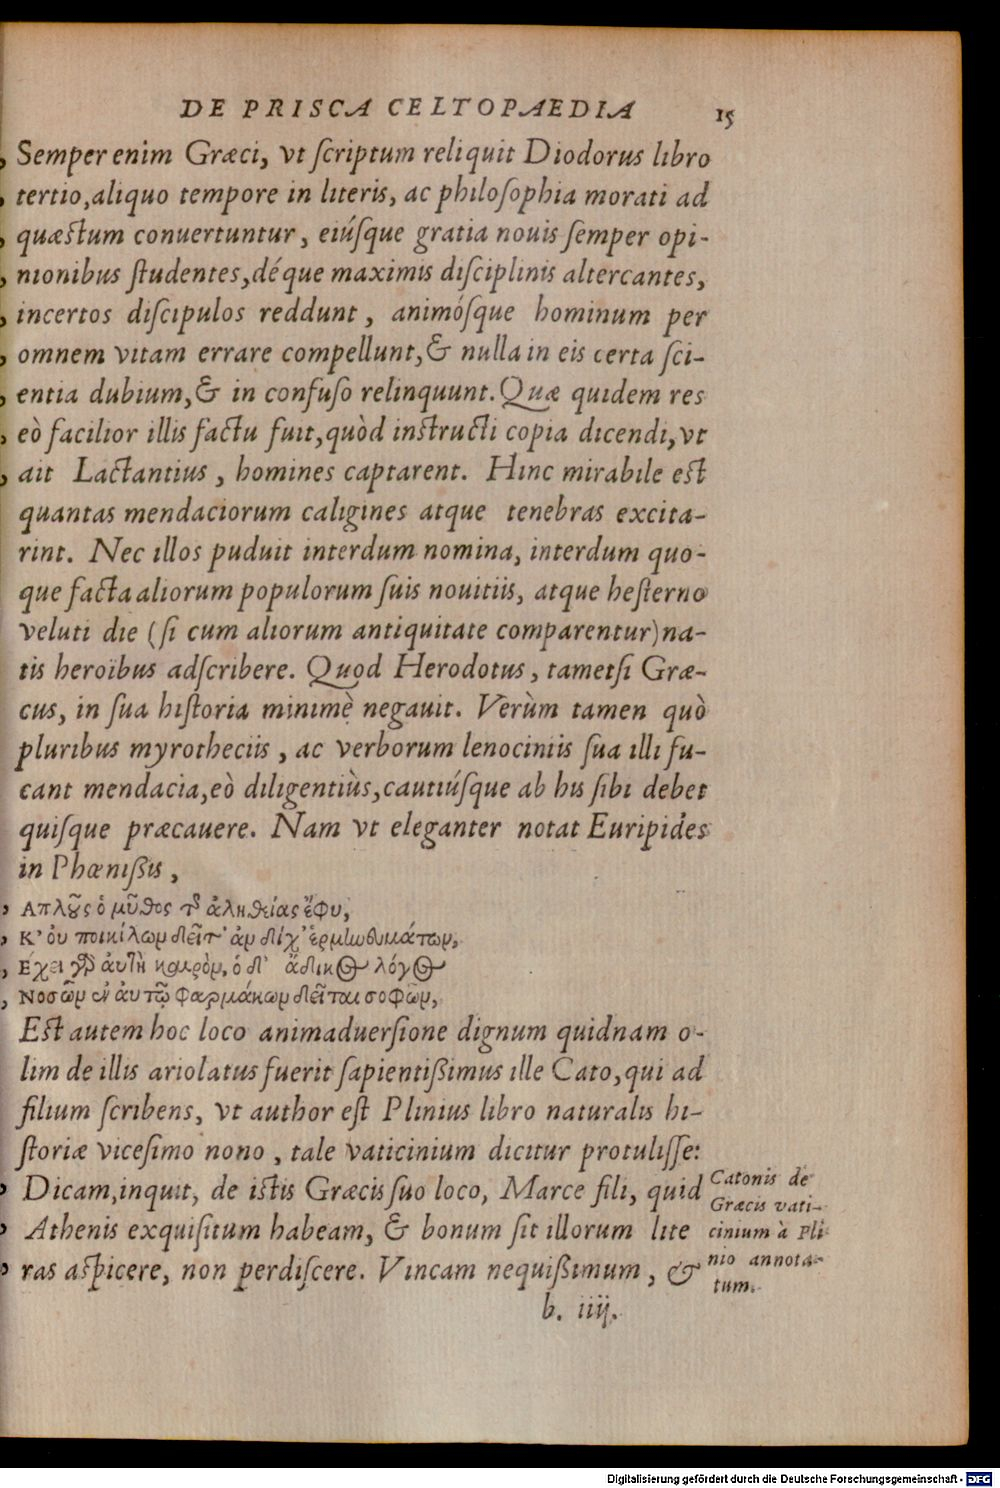 DE PRISCA CELTOPAEDIA 15
, Semper enim Græci, vt ſcriptum reliquit Diodorus libro
, tertio, aliquo tempore in literis, ac philoſophia morati ad
, quæſtum conuertuntur, eiúſque gratia nouis ſemper opi-
, nionibus ſtudentes, déque maximis diſciplinis altercantes,
, incertos diſcipulos reddunt, animóſque hominum per
, omnem vitam errare compellunt, & nulla in eis certa ſci-
, entia dubium, & in confuſo relinquunt. Quæ quidem res
, eò facilior illis factu fuit, quòd inſtructi copia dicendi, vt
, ait Lactantius, homines captarent. Hinc mirabile eſt
quantas mendaciorum caligines atque tenebras excita-
rint. Nec illos puduit interdum nomina, interdum quo-
que facta aliorum populorum ſuis nouitiis, atque heſterno
veluti die (ſi cum aliorum antiquitate comparentur) na-
tis heroïbus adſcribere. Quod Herodotus, tametſi Græ-
cus, in ſua hiſtoria minimè negauit. Verùm tamen quò
pluribus myrotheciis, ac verborum lenociniis ſua illi fu-
cant mendacia, eò diligentiùs, cautiúſque ab his ſibi debet
quiſque præcauere. Nam vt eleganter notat Euripides
in Phœnißis,
, Απλοῦς ὁ μῦθος τῆς ἀληθείας ἔφυ,
, Κ' οὐ ποικίλων δεῖτ' ἀν δίχ' ἑρμηνθυμάτων,
, Εχει γὰρ ἀυτὴ καιρὸν, ὁ δ' ἄδικος λόγος
, Νοσῶν ἐν ἀυτῷ φαρμάκων δεῖται σοφῶν,
Eſt autem hoc loco animaduerſione dignum quidnam o-
lim de illis ariolatus fuerit ſapientißimus ille Cato, qui ad
filium ſcribens, vt author eſt Plinius libro naturalis hi-
ſtoriæ viceſimo nono, tale vaticinium dicitur protuliſſe:
, Dicam, inquit, de iſtis Græcis ſuo loco, Marce fili, quid
, Athenis exquiſitum habeam, & bonum ſit illorum lite
, ras aſpicere, non perdiſcere. Vincam nequißimum, &
Catonis de
Græcis vati-
cinium à Pli
nio annota-
tum.
b. iiij.
Digitalisierung gefördert durch die Deutsche Forschungsgemeinschaft - DFG